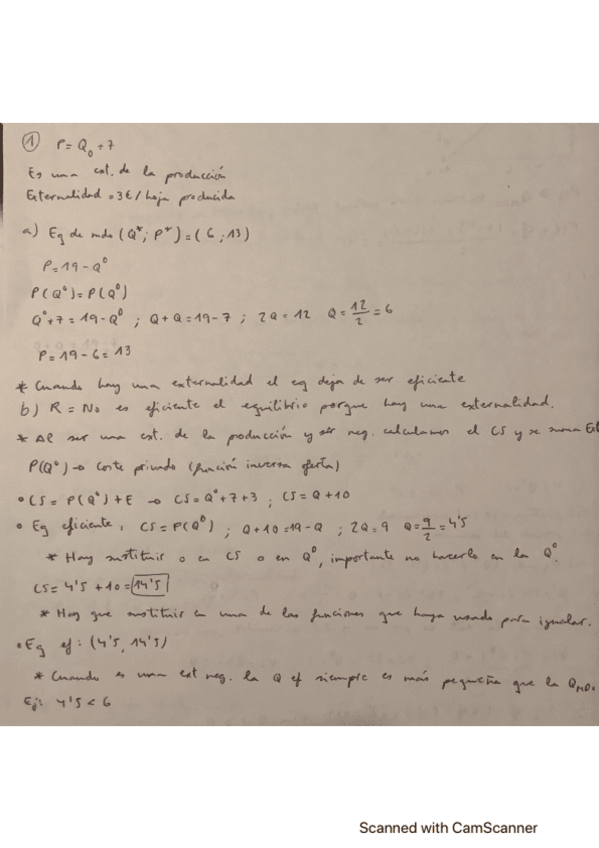 ① P = Q₀ + 7
Es una ext. de la producción
Externalidad = 3€ / hoja producida
a) Eq de mdo (Q*; P*) = ( 6 ; 13)
P = 19 - Qᴰ
P(Qᴼ) = P(Qᴰ)
Qᴼ + 7 = 19 - Qᴰ ; Q + Q = 19 - 7 ; 2Q = 12 Q = 12/2 = 6
P = 19 - 6 = 13
* Cuando hay una externalidad el eq deja de ser eficiente
b) R = No es eficiente el equilibrio porque hay una externalidad.
* Al ser una ext. de la producción y ser neg. calculamos el CS y se suma
P(Qᴼ) → Coste privado (función inversa oferta)
• CS = P(Qᴼ) + E → CS = Qᴼ + 7 + 3 ; CS = Q + 10
• Eq eficiente: CS = P(Qᴰ) ; Q + 10 = 19 - Q ; 2Q = 9 Q = 9/2 = 4'5
* Hay sustituir o en CS o en Qᴰ, importante no hacerlo en la Qᴼ.
CS = 4'5 + 10 = 14'5
* Hay que sustituir en una de las funciones que haya usado para igualar.
• Eq ef: (4'5, 14'5)
* Cuando es una ext neg. la Q ef siempre es más pequeña que la QMD.
Ej: 4'5 < 6
Scanned with CamScanner